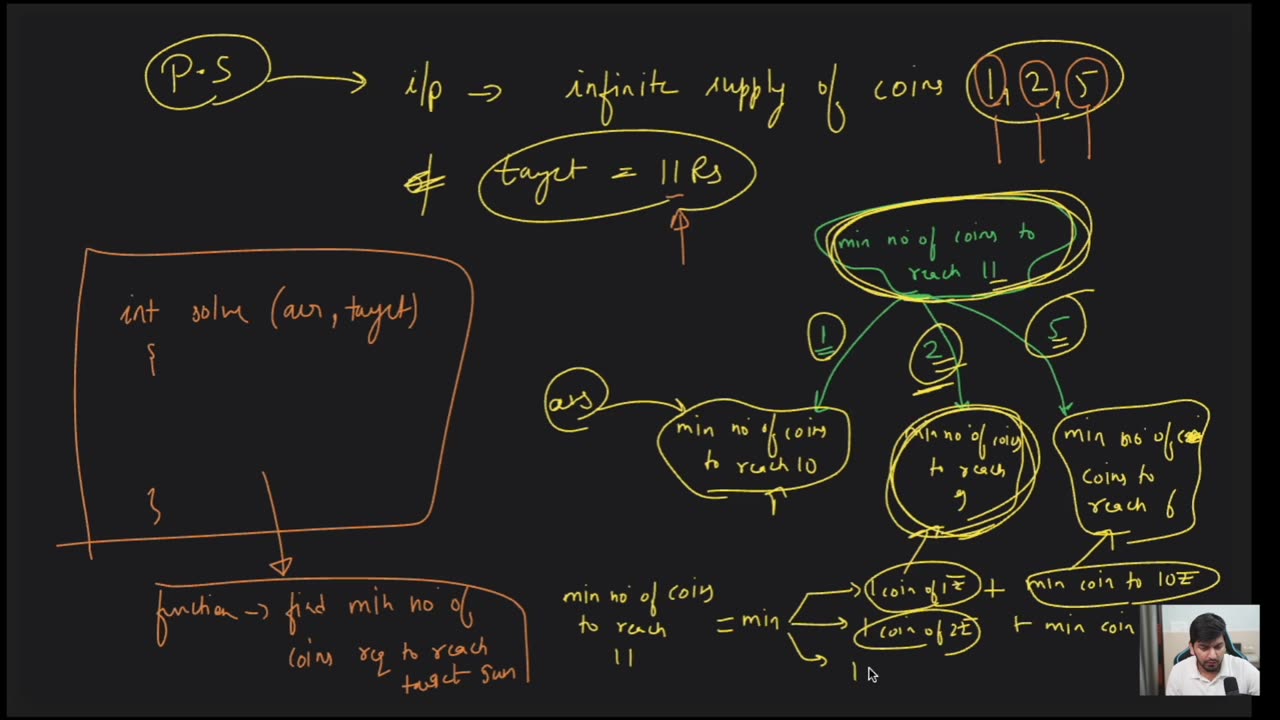 P.S → i/p → infinite supply of coins 1, 2, 5
target = 11 Rs
min no of coins to
reach 11
int solve (arr, target)
{
}
1
2
5
ans
min no of coins
to reach 10
min no of coins
to reach
9
min no of
coins to
reach 6
function → find min no of
coins req to reach
target sum
min no of coins
to reach
11
= min
1 coin of 1₹ + min coin to 10₹
1 coin of 2₹ + min coin
1